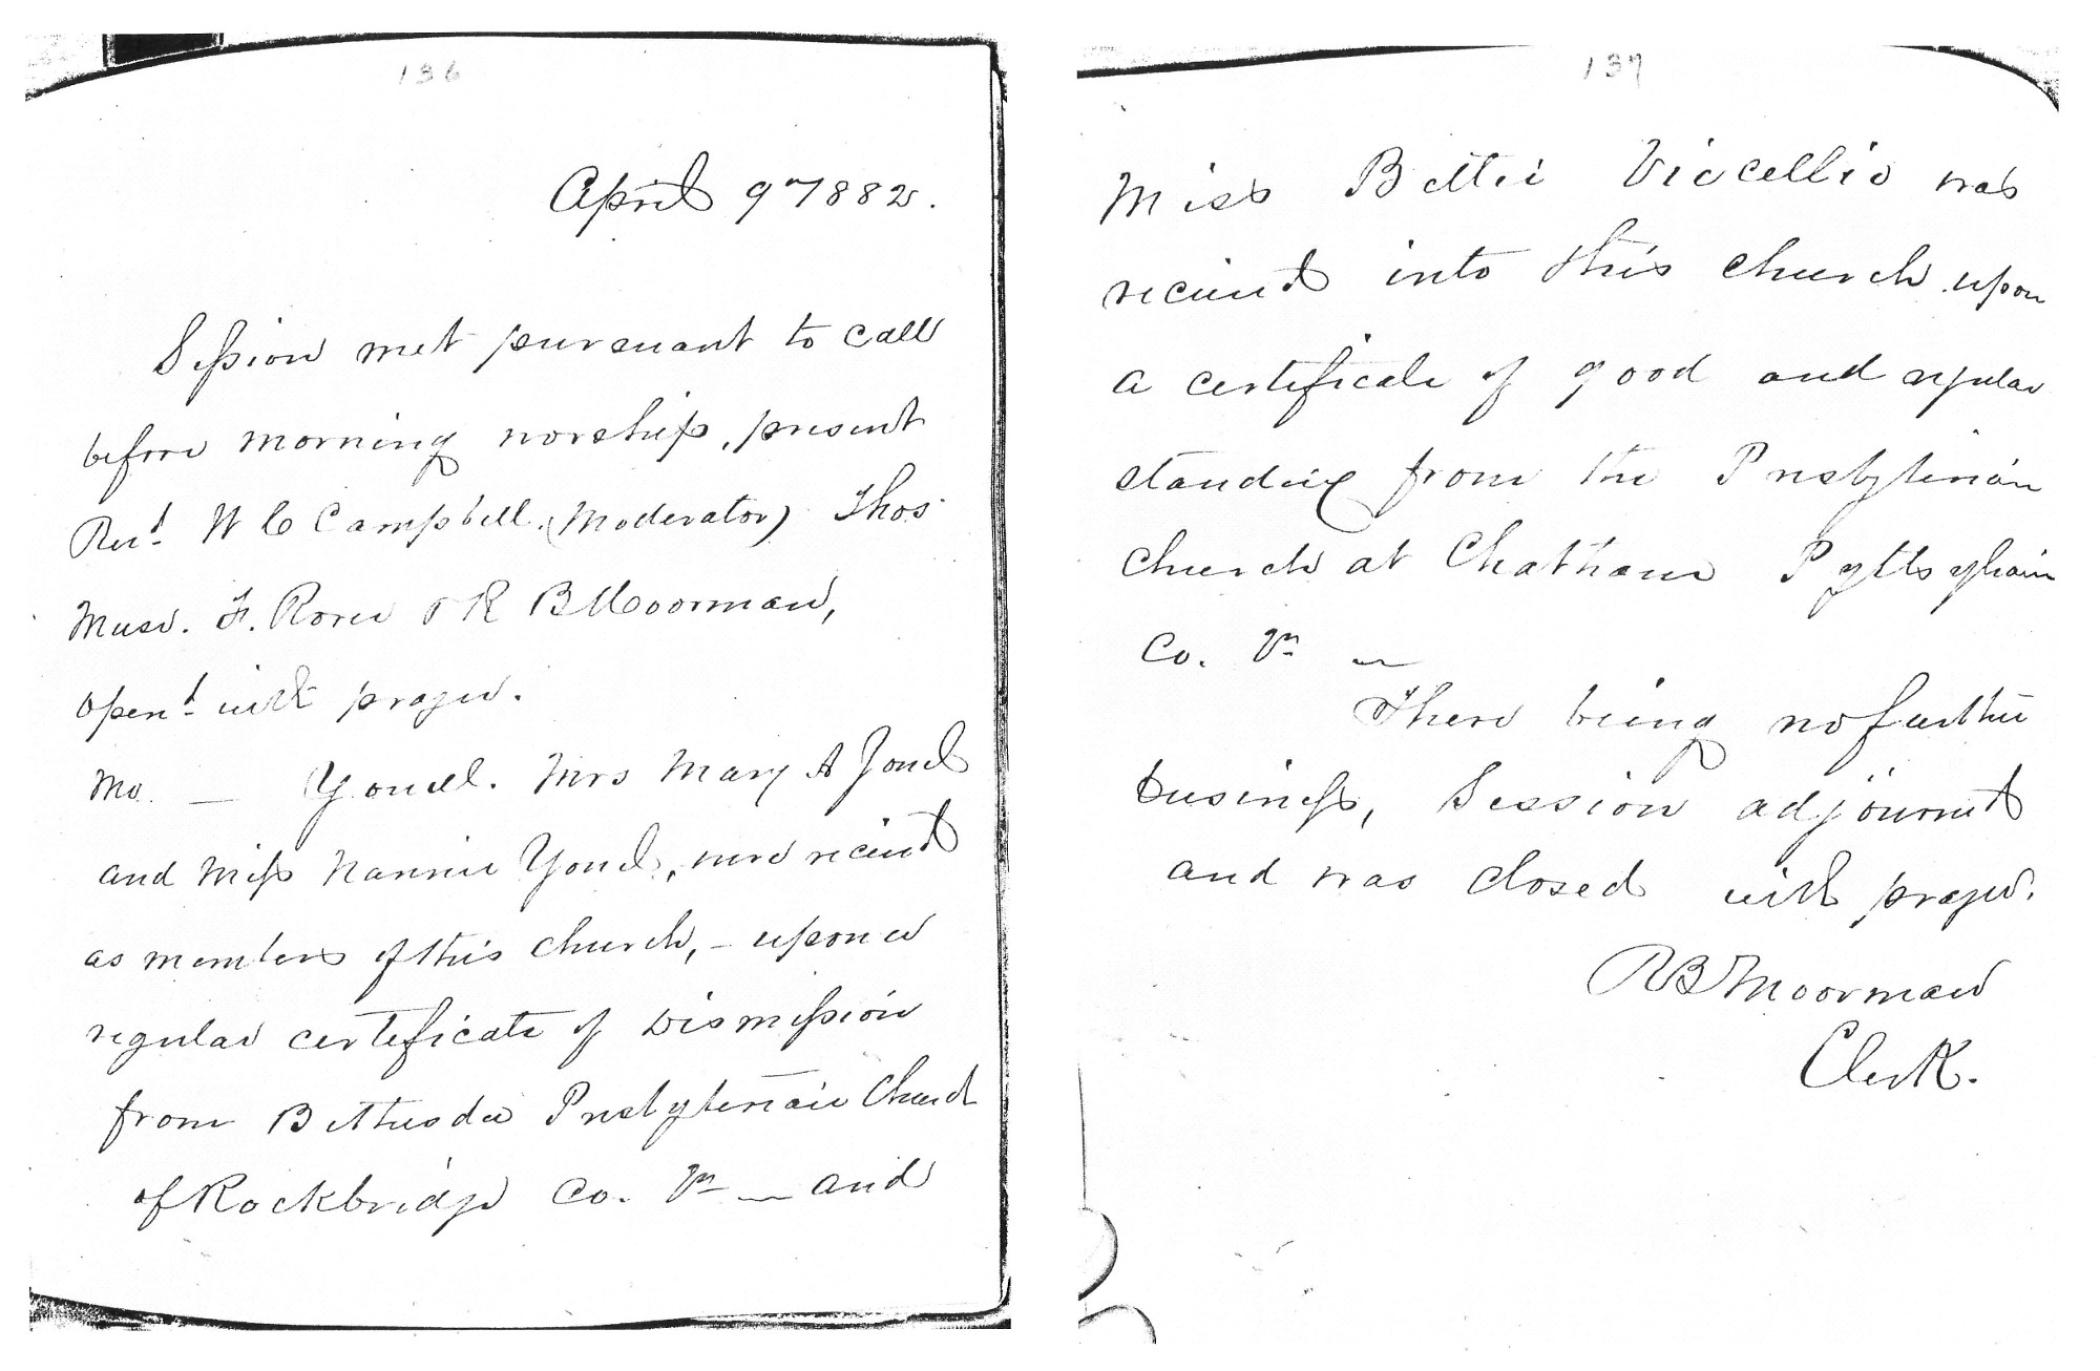 136
April 9th 1882.
Session met pursuant to call
before morning worship, present
Revd. W C Campbell (Moderator) Thos
Muse. F. Rorer & R B Moorman,
opend. with prayer.
Mr. — Youel. Mrs Mary A Youel
and Miss Nannie Youel, were receivd
as members of this church, — upon a
regular certificate of Dismission
from Bethesda Presbyterian Church
of Rockbridge Co. Va — and
137
Miss Bettie Viccellio was
receivd into this church upon
a certificate of good and regular
standing from the Presbyterian
church at Chatham
Co. Va —
There being no further
business, Session adjournd
and was closed with prayer.
R B Moorman
Clerk.